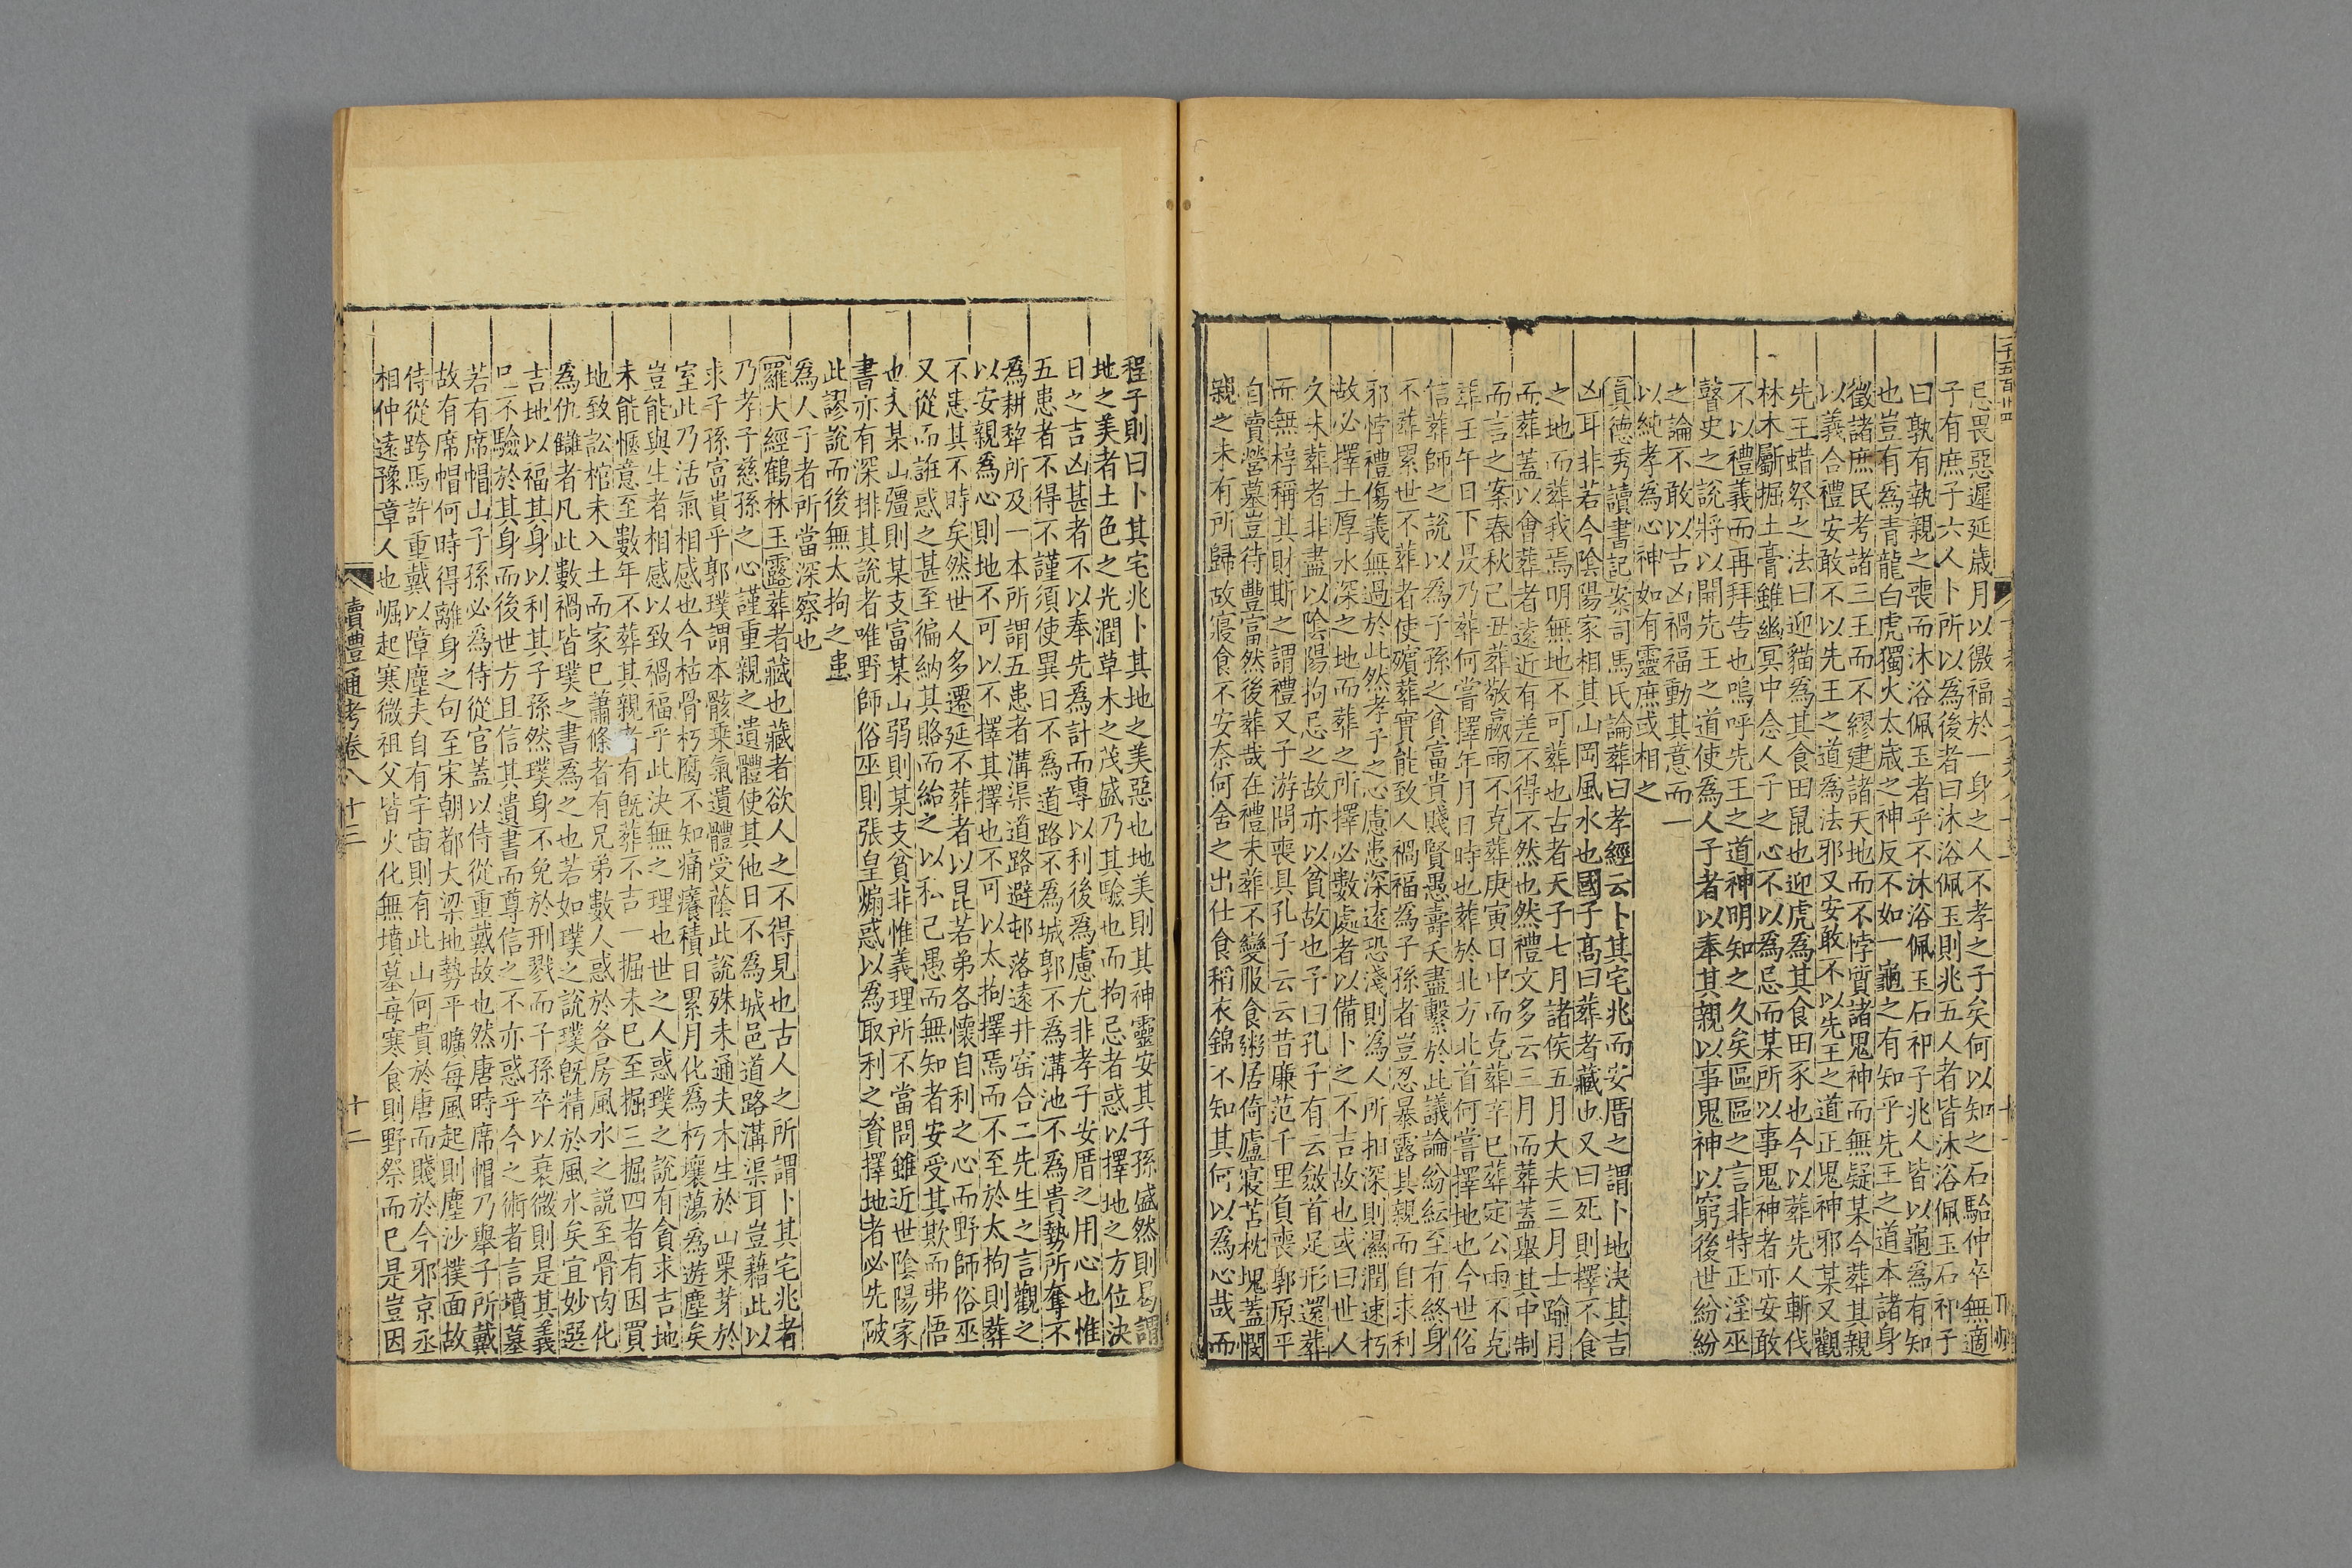 忌畏惡遲延歲月以徼福於一身之人不孝之子矣何以知之石駘仲卒無適
子有庶子六人卜所以為後者曰沐浴佩玉則兆五人者皆沐浴佩玉石祁子
曰孰有執親之喪而沐浴佩玉者乎不沐浴佩玉石祁子兆人皆以龜為有知
也豈有為青龍白虎獨火太歲之神反不如一龜之有知乎先王之道本諸身
徵諸庶民考諸三王而不繆建諸天地而不悖質諸鬼神而無疑某今葬其親
以義合禮安敢不以先王之道為法邪又安敢不以先王之道正鬼神邪某又觀
先王蜡祭之法曰迎貓為其食田鼠也迎虎為其食田豕也今以葬先人斬伐
林木斸掘土膏雖幽冥中念人子之心不以為忌而某所以事鬼神者亦安敢
不以禮義而再拜告也嗚呼先王之道神明知之久矣區區之言非特正淫巫
瞽史之說將以開先王之道使為人子者以奉其親以事鬼神以窮後世紛紛
之論不敢以古凶禍福動其意而一
以純孝為心神如有靈庶或相之
真德秀讀書記案司馬氏論葬曰孝經云卜其宅兆而安厝之謂卜地決其吉
凶耳非若今陰陽家相其山岡風水也國子高曰葬者藏也又曰死則擇不食
之地而葬我焉明無地不可葬也古者天子七月諸侯五月大夫三月士踰月
而葬蓋以會葬者遠近有差不得不然也然禮文多云三月而葬蓋舉其中制
而言之案春秋己丑葬敬嬴雨不克葬庚寅日中而克葬辛巳葬定公雨不克
葬壬午日下昃乃葬何嘗擇年月日時也葬於北方北首何嘗擇地也今世俗
信葬師之說以為子孫之貧富貴賤賢愚壽夭盡繫於此議論紛紜至有終身
不葬累世不葬者使殯葬實能致人禍福為子孫者豈忍暴露其親而自求利
邪悖禮傷義無過於此然孝子之心慮患深遠恐淺則為人所抇深則濕潤速朽
故必擇土厚水深之地而葬之所擇必數處者以備卜之不吉故也或曰世人
久未葬者非盡以陰陽拘忌之故亦以貧故也予曰孔子有云斂首足形還葬
而無槨稱其財斯之謂禮又子游問喪具孔子云云昔廉范千里負喪郭原平
自賣營墓豈待豐富然後葬哉在禮未葬不變服食粥居倚廬寢苫枕塊蓋閔
親之未有所歸故寢食不安柰何舍之出仕食稻衣錦不知其何以為心哉而
程子則曰卜其宅兆卜其地之美惡也地美則其神靈安其子孫盛然則曷謂
地之美者土色之光潤草木之茂盛乃其驗也而拘忌者惑以擇地之方位決
日之吉凶甚者不以奉先為計而專以利後為慮尤非孝子安厝之用心也惟
五患者不得不謹須使異日不為道路不為城郭不為溝池不為貴勢所奪不
為耕犂所及一本所謂五患者溝渠道路避邨落遠井窑合二先生之言觀之
以安親為心則地不可以不擇其擇也不可以太拘擇焉而不至於太拘則葬
不患其不時矣然世人多遷延不葬者以昆若弟各懷自利之心而野師俗巫
又從而誑惑之甚至徧納其賂而紿之以私己愚而無知者安受其欺而弗悟
也夫某山彊則某支富某山弱則某支貧非惟義理所不當問雖近世陰陽家
書亦有深排其說者唯野師俗巫則張皇煽惑以為取利之資擇地者必先破
此謬說而後無太拘之患
為人子者所當深察也
羅大經鶴林玉露葬者藏也藏者欲人之不得見也古人之所謂卜其宅兆者
乃孝子慈孫之心謹重親之遺體使其他日不為城邑道路溝渠耳豈藉此以
求子孫富貴乎郭璞謂本骸乗氣遺體受蔭此說殊未通夫木生於山栗芽於
室此乃活氣相感也今枯骨朽腐不知痛癢積日累月化為朽壤蕩為遊塵矣
豈能與生者相感以致禍福乎此決無之理也世之人惑璞之說有貪求吉地
未能愜意至數年不葬其親者有既葬不吉一掘未已至掘三掘四者有因買
地致訟棺未入土而家已蕭條者有兄弟數人惑於各房風水之說至骨肉化
為仇讎者凡此數禍皆璞之書為之也若如璞之說璞既精於風水矣宜妙選
吉地以福其身以利其子孫然璞身不免於刑戮而子孫卒以衰微則是其義
已不驗於其身而後世方且信其遺書而尊信之不亦惑乎今之術者言墳墓
若有席帽山子孫必為侍從官蓋以侍從重戴故也然唐時席帽乃舉子所戴
故有席帽何時得離身之句至宋朝都大梁地勢平曠每風起則塵沙撲面故
侍從跨馬許重戴以障塵夫自有宇宙則有此山何貴於唐而賤於今邪京丞
相仲遠豫章人也崛起寒微祖父皆火化無墳墓每寒食則野祭而已是豈因
讀禮通考卷八十三　十二